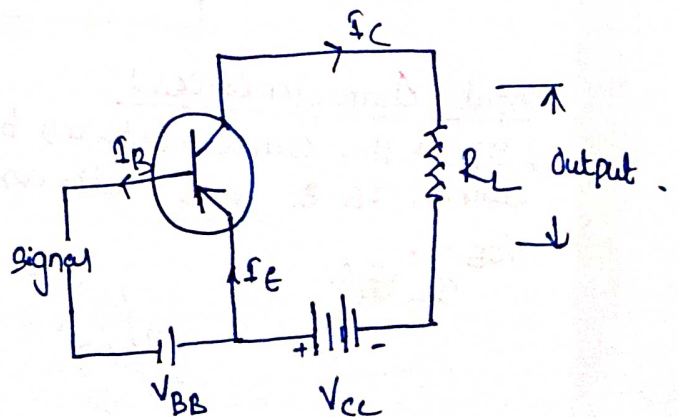 IC
IB
RL
output.
signal
IE
+
-
VBB
VCC